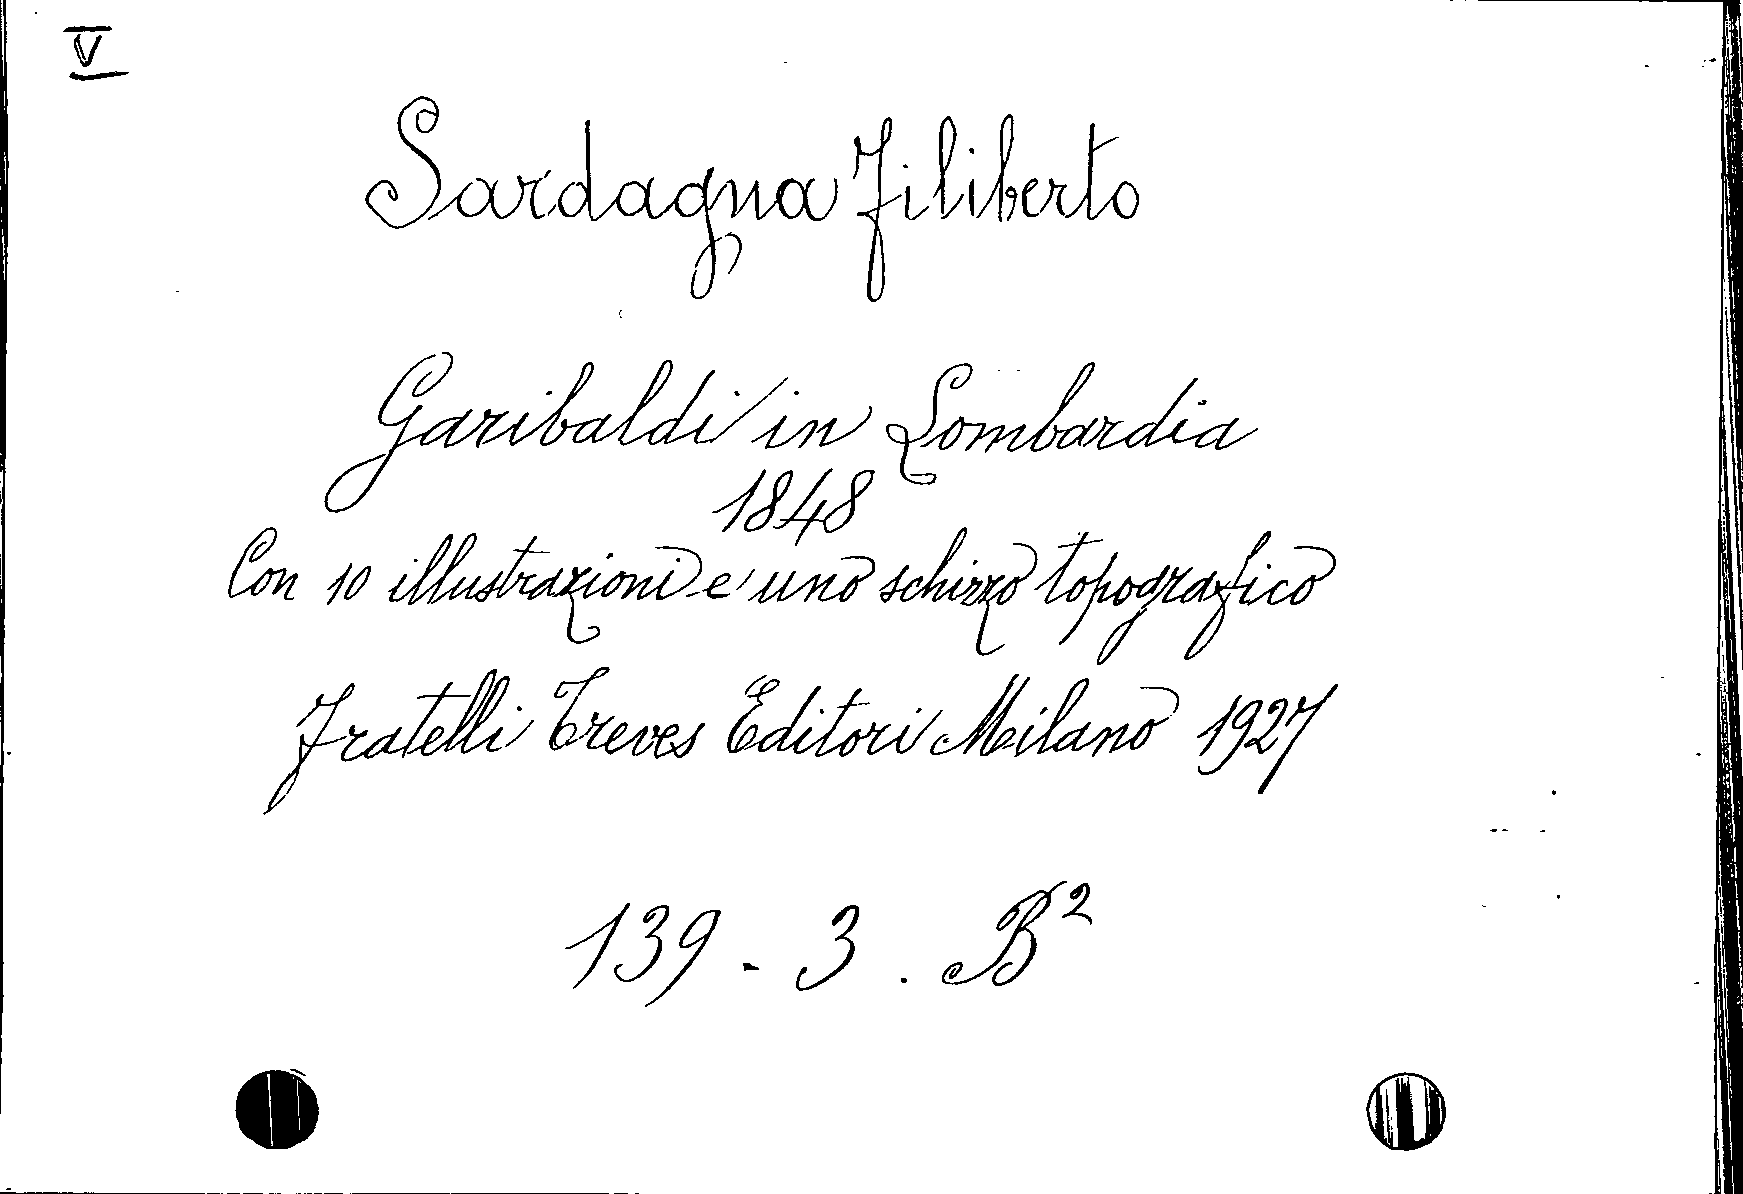 V
Sardagna Filiberto
Garibaldi in Lombardia
1848
Con 10 illustrazioni e uno schizzo topografico
Fratelli Treves Editori Milano 1927
139 - 3 . B²